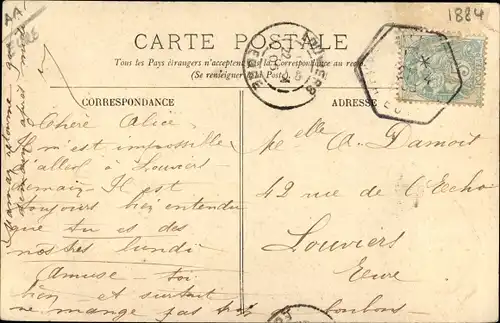 AA
1884
CARTE POSTALE
Tous les Pays étrangers n'acceptent pas la Correspondance au recto
(Se renseigner à la Poste).
LOUVIERS
EURE
CORRESPONDANCE
ADRESSE
Chère Alice
Il m'est impossible
d'aller à Louviers
demain. Il est
toujours bien entendu
que tu es des
nôtres lundi
Amuse-toi
bien et surtout
ne mange pas trop
bonbons.
Maman retourne
demain après midi
Melle A. Damoit
42 rue de l'Echo
Louviers
Eure